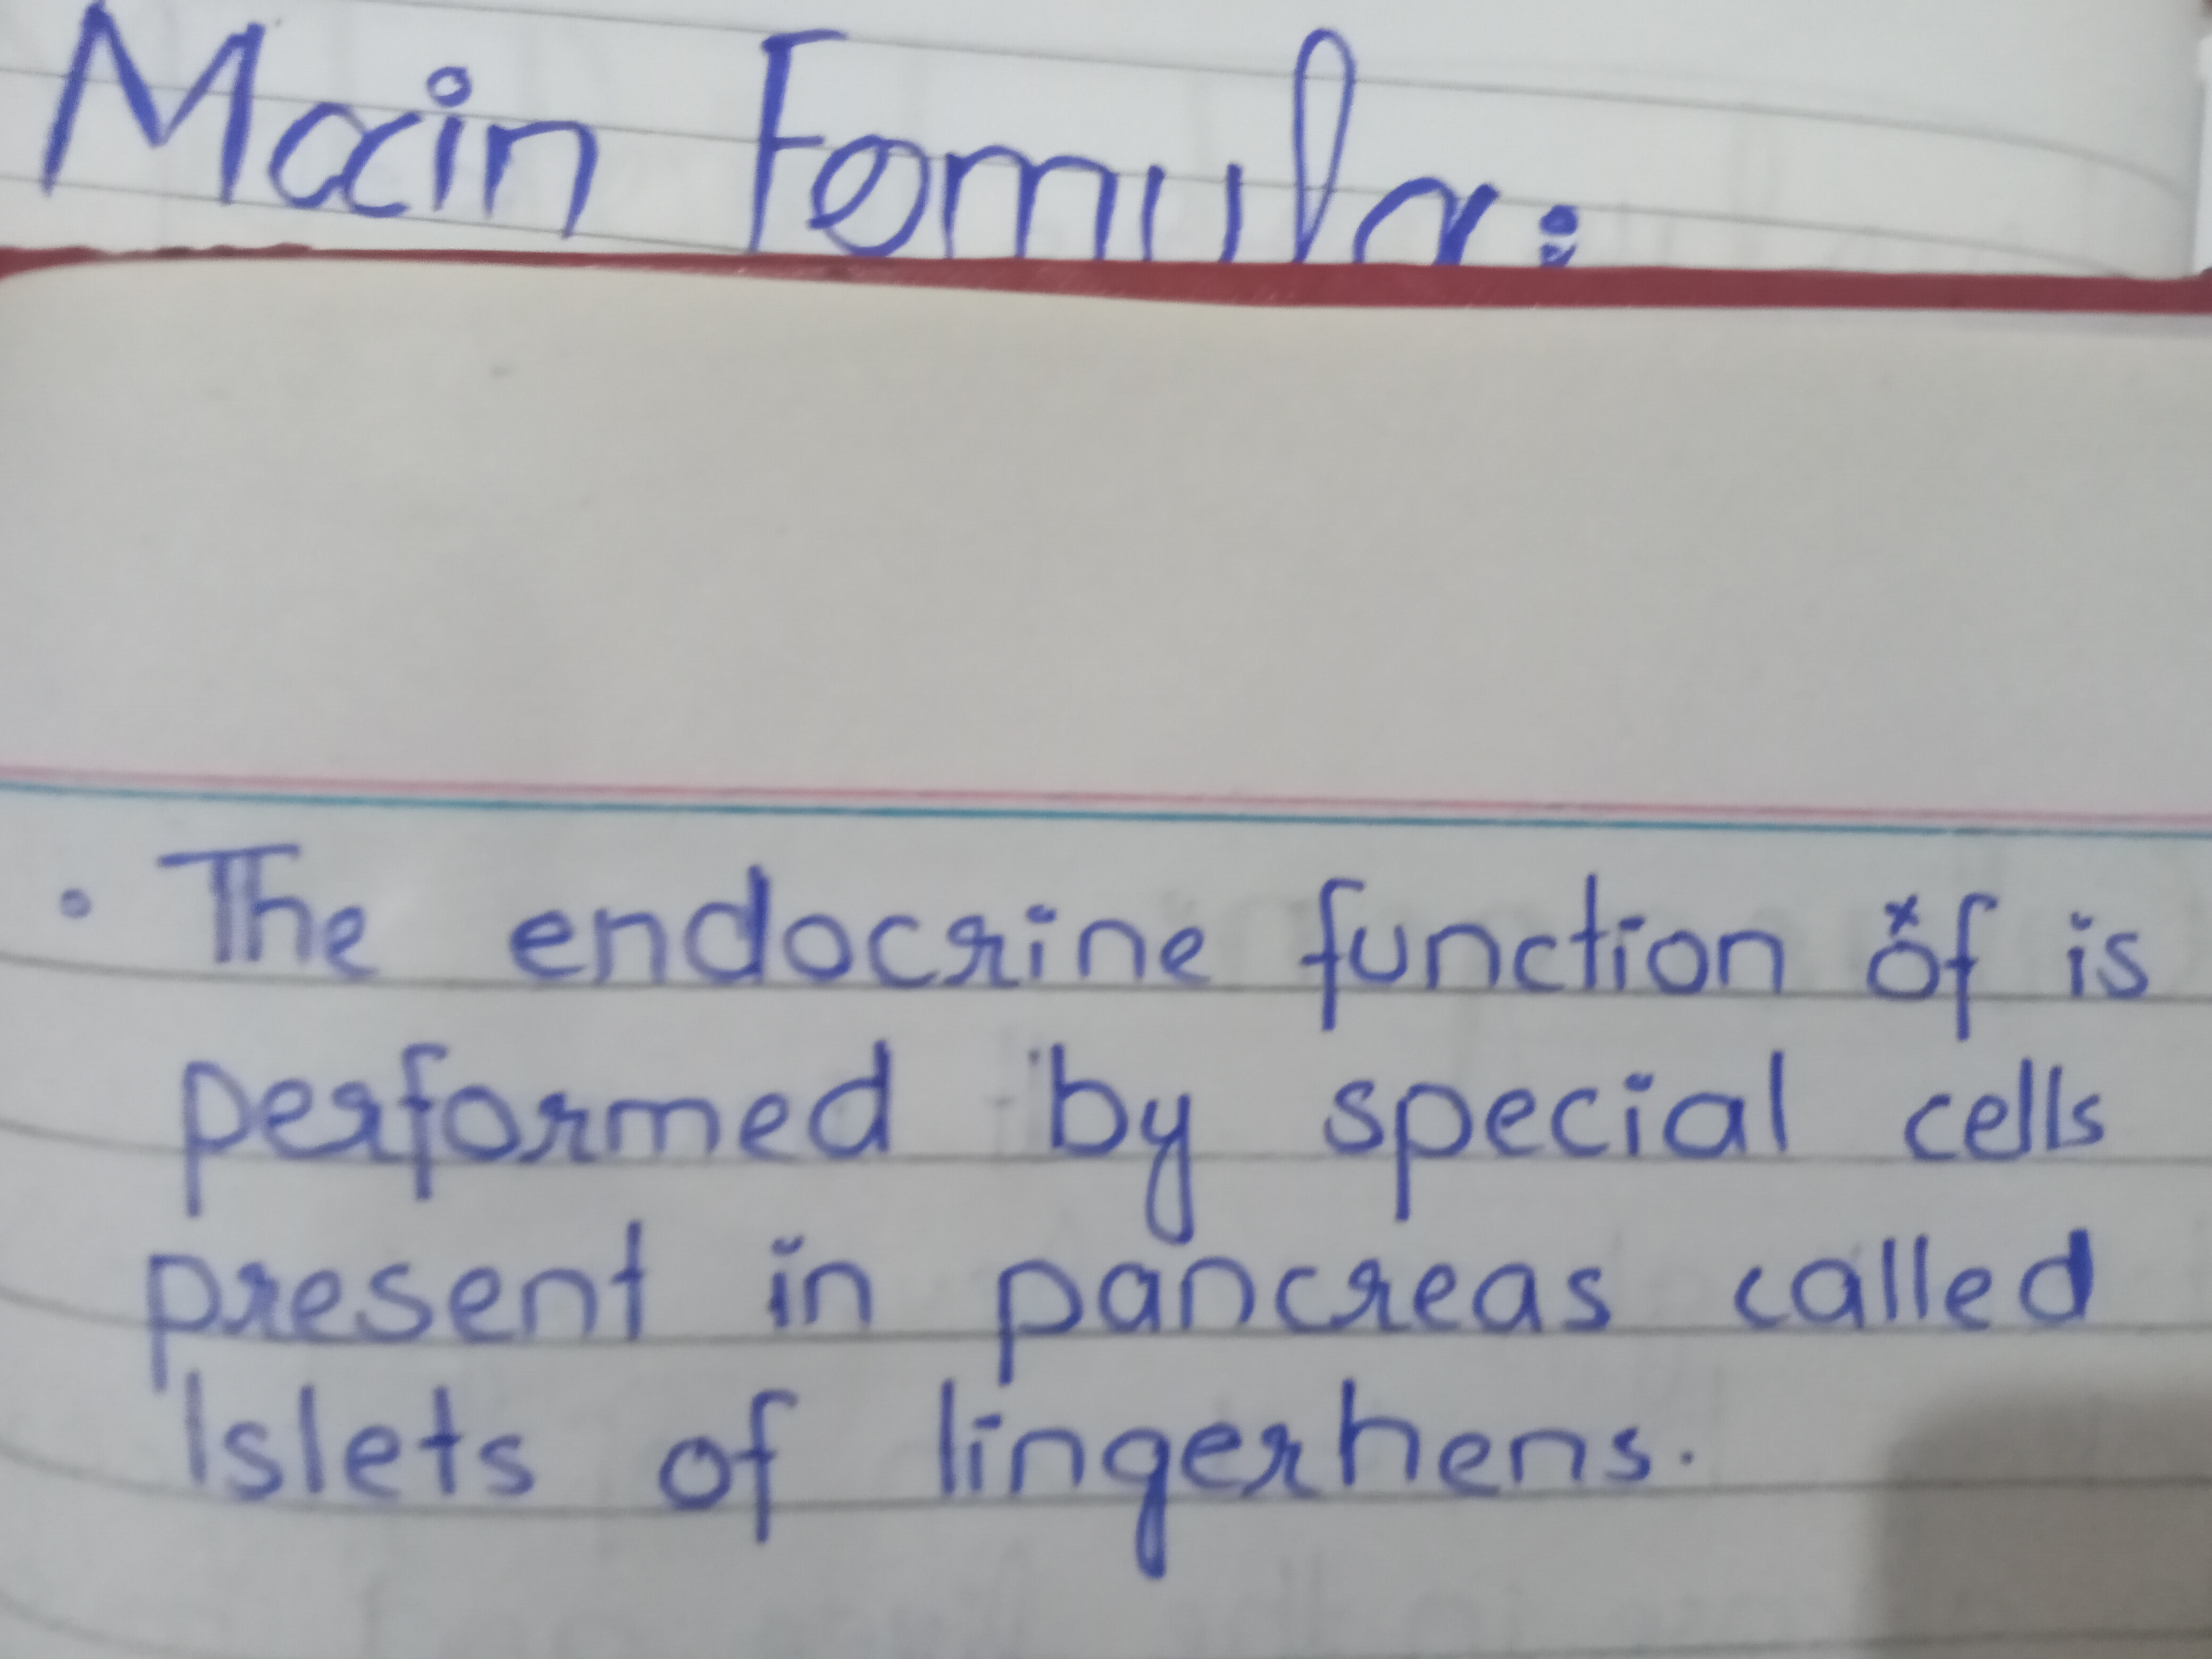 Main Fomula:
• The endocrine function of is
performed by special cells
present in pancreas called
Islets of lingerhens.